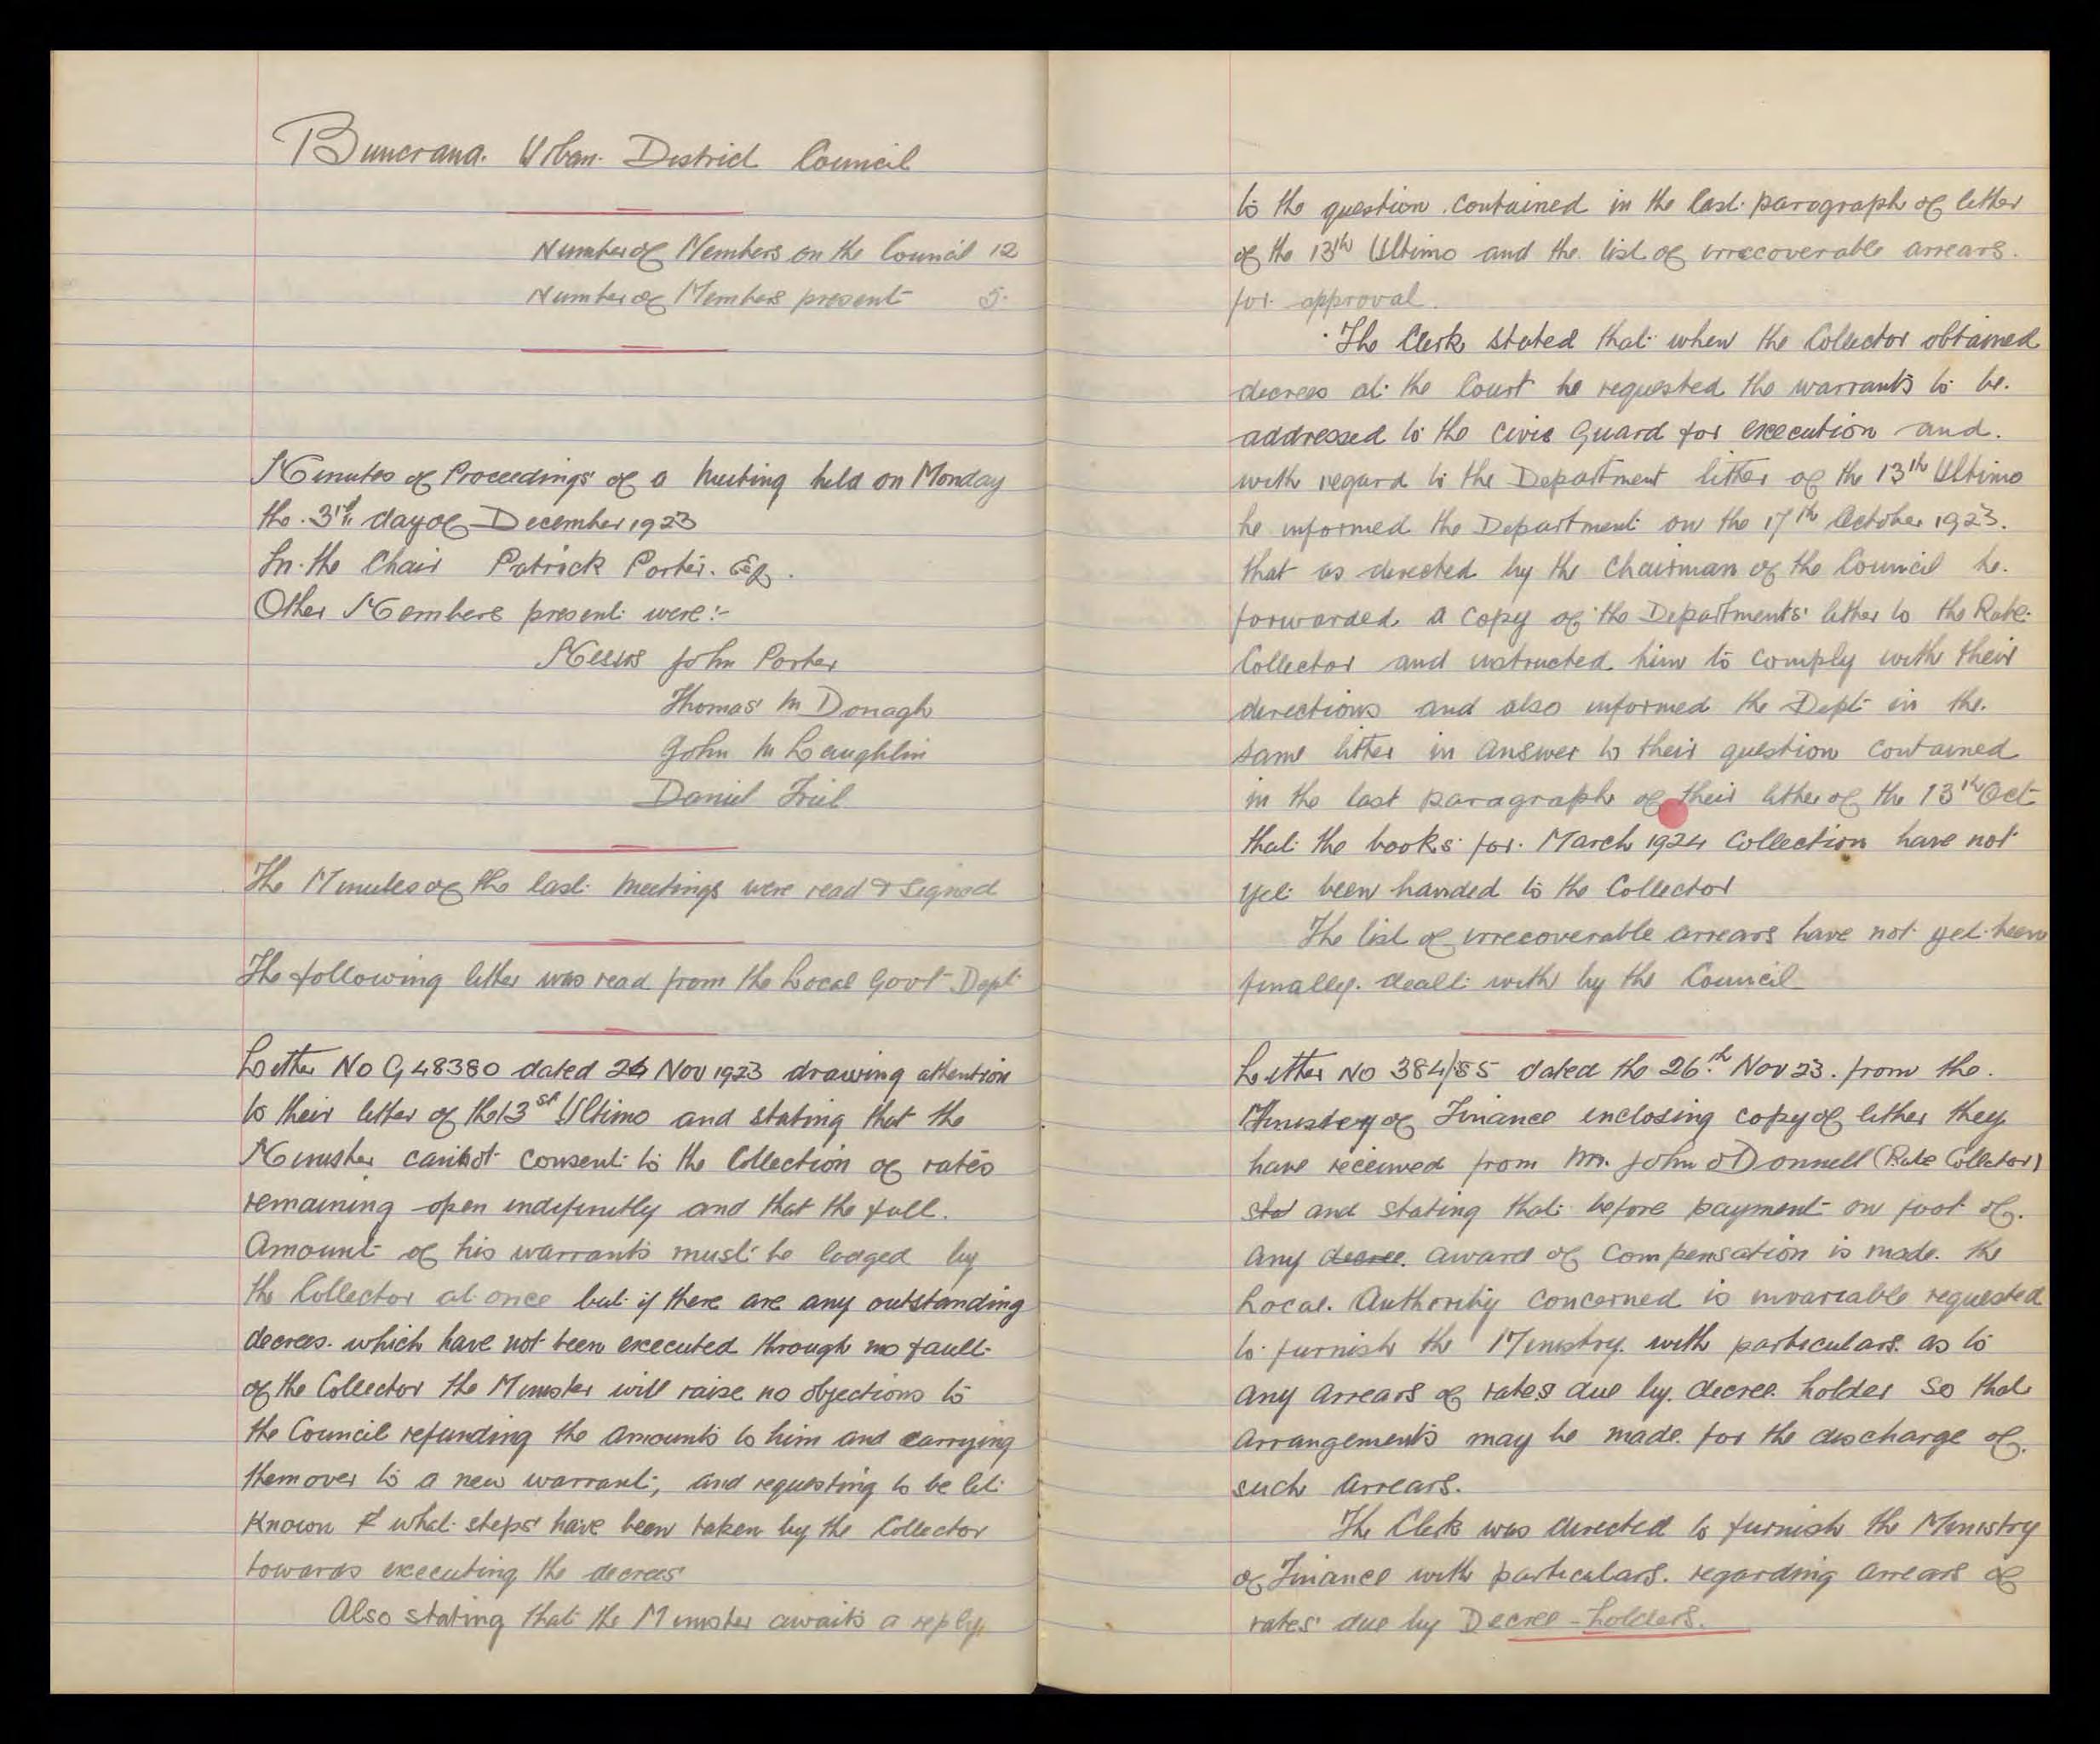 Buncrana. Urban. District Council
Number of Members on the Council 12
Number of Members present 5.
Minutes of Proceedings of a meeting held on Monday
the. 3rd day of December 1923
In. the Chair Patrick Porter. Esq.
Other Members present were:-
Messrs John Porter
Thomas Mc Donagh
John Mc Laughlin
Daniel Friel
The Minutes of the last meetings were read & signed
The following letter was read from the Local Govt Dept
Letter No G 48380 dated 26 Nov 1923 drawing attention
to their letter of the 13st Ultimo and stating that the
Minister cannot consent to the Collection of rates
remaining open indefinitly and that the full.
Amount of his warrants must be lodged by
the Collector at once but if there are any outstanding
decrees. which have not been executed through no fault
of the Collector the Minister will raise no objections to
the Council refunding the amounts to him and carrying
them over to a new warrant; and requesting to be let
Known what steps have been taken by the Collector
towards executing the decrees
Also stating that the Minister awaits a reply
to the question contained in the last paragraph of letter
of the 13th Ultimo and the list of irrecoverable arrears.
for approval.
The Clerk stated that when the Collector obtained
decrees at the Court he requested the warrants to be.
addressed to the Civic Guard for execution and.
with regard to the Department letter of the 13th Ultimo
he informed the Department on the 17th October 1923.
that as directed by the Chairman of the Council he.
forwarded a copy of the Departments' letter to the Rate
Collector and instructed him to comply with their
directions and also informed the Dept in the.
same letter in answer to their question contained
in the last paragraph of their letter of the 13th Oct
that the books for March 1924 Collection have not
yet been handed to the Collector
The list of irrecoverable arrears have not yet been
finally. dealt with by the Council
Letter No 384/85 dated the 26th Nov 23. from the.
Ministery of Finance enclosing copy of letter they
have received from Mr. John O'Donnell (Rate Collector)
sta and stating that before payment on foot of.
any decree. award of Compensation is made. the
Local. Authority concerned is invariable requested
to furnish the Ministry. with particulars. as to
any arrears of rates due by. decree. holder so that
arrangements may be made. for the discharge of.
such arrears.
The Clerk was directed to furnish the Ministry
of Finance with particulars. regarding arrears of
rates due by Decree - holders.